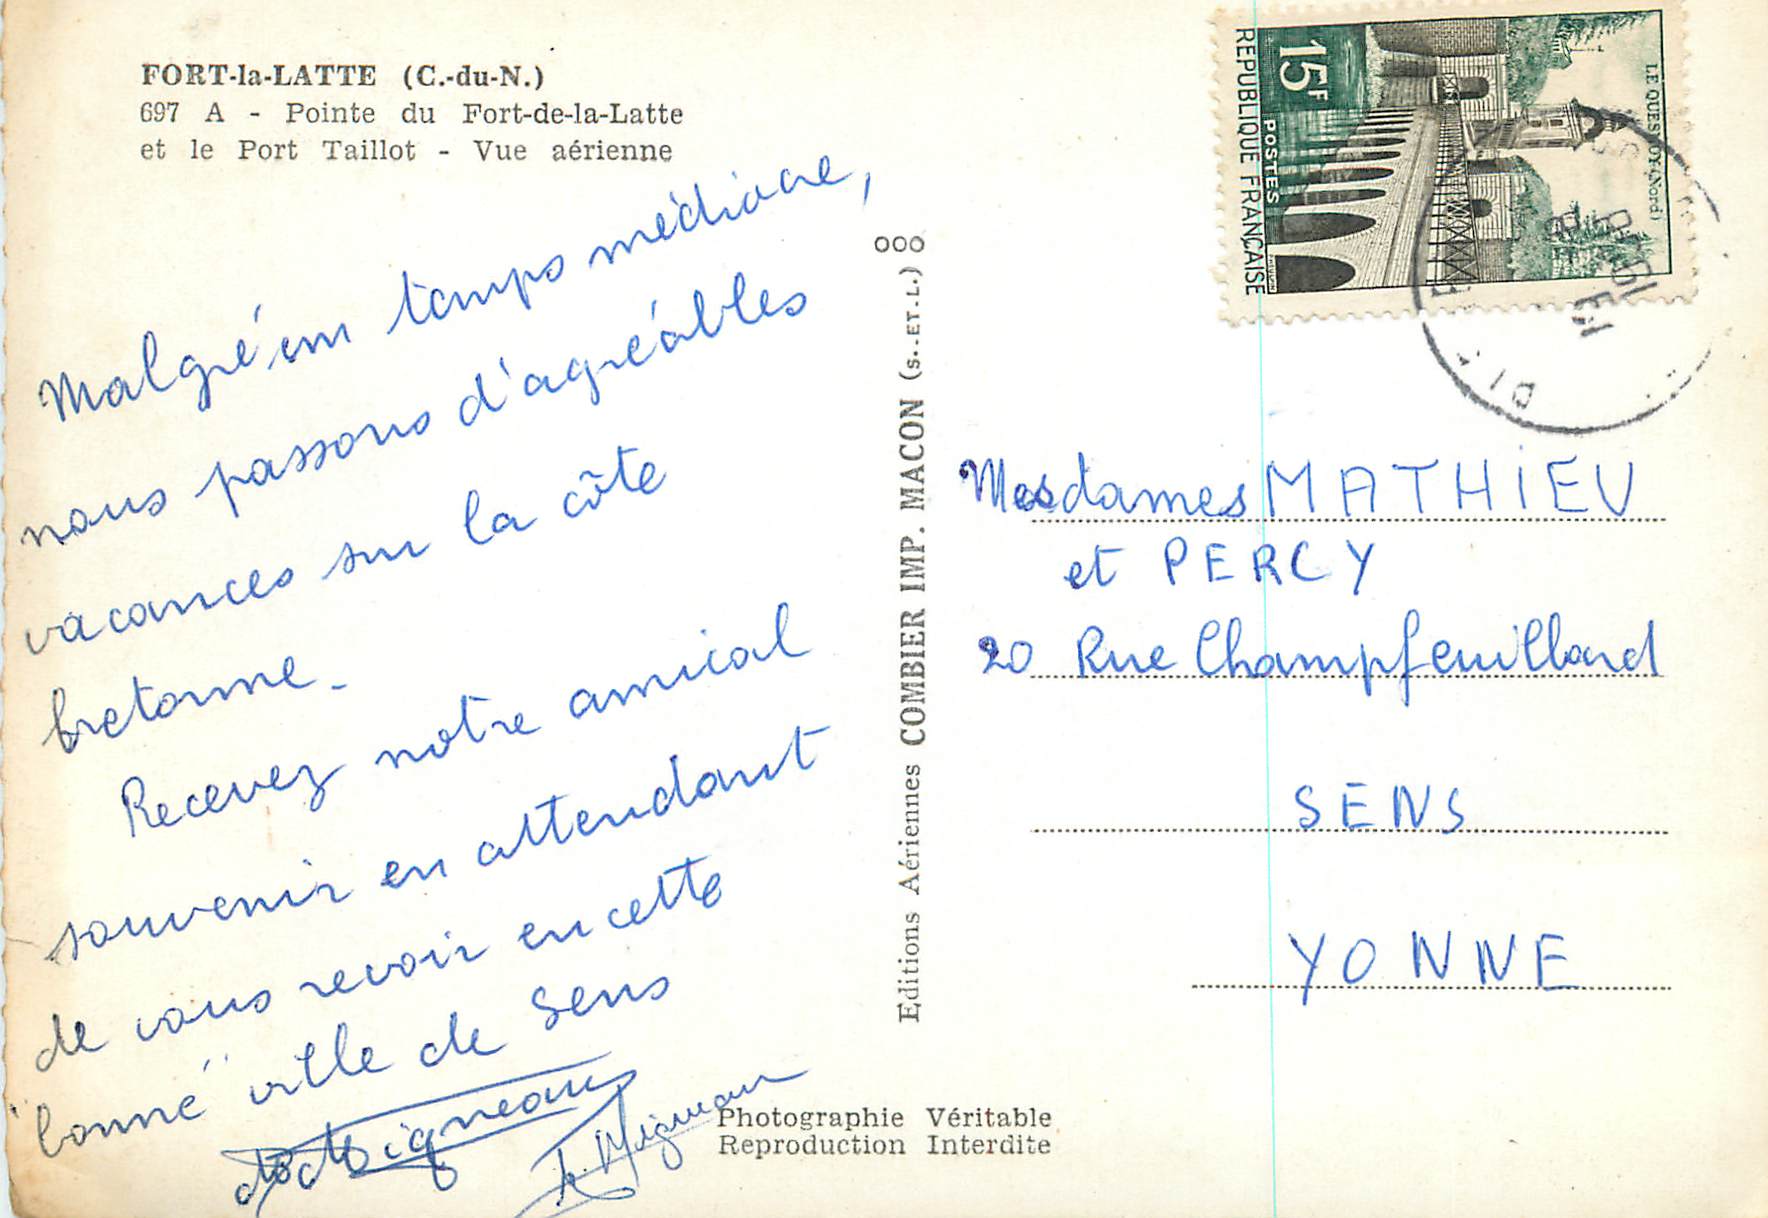 FORT-la-LATTE (C.-du-N.)
697 A - Pointe du Fort-de-la-Latte
et le Port Taillot - Vue aérienne
Malgré un temps médiocre,
nous passons d'agréables
vacances sur la côte
bretonne.
Recevez notre amical
souvenir en attendant
de vous revoir en cette
"bonne" ville de Sens
Migneau
Migneau
Photographie Véritable
Reproduction Interdite
Editions Aériennes COMBIER IMP. MACON (S.-ET-L.)
15F
POSTES
REPUBLIQUE FRANÇAISE
LE QUESNOY (Nord)
Mesdames MATHIEU
et PERCY
20 Rue Champfeuillard
SENS
YONNE